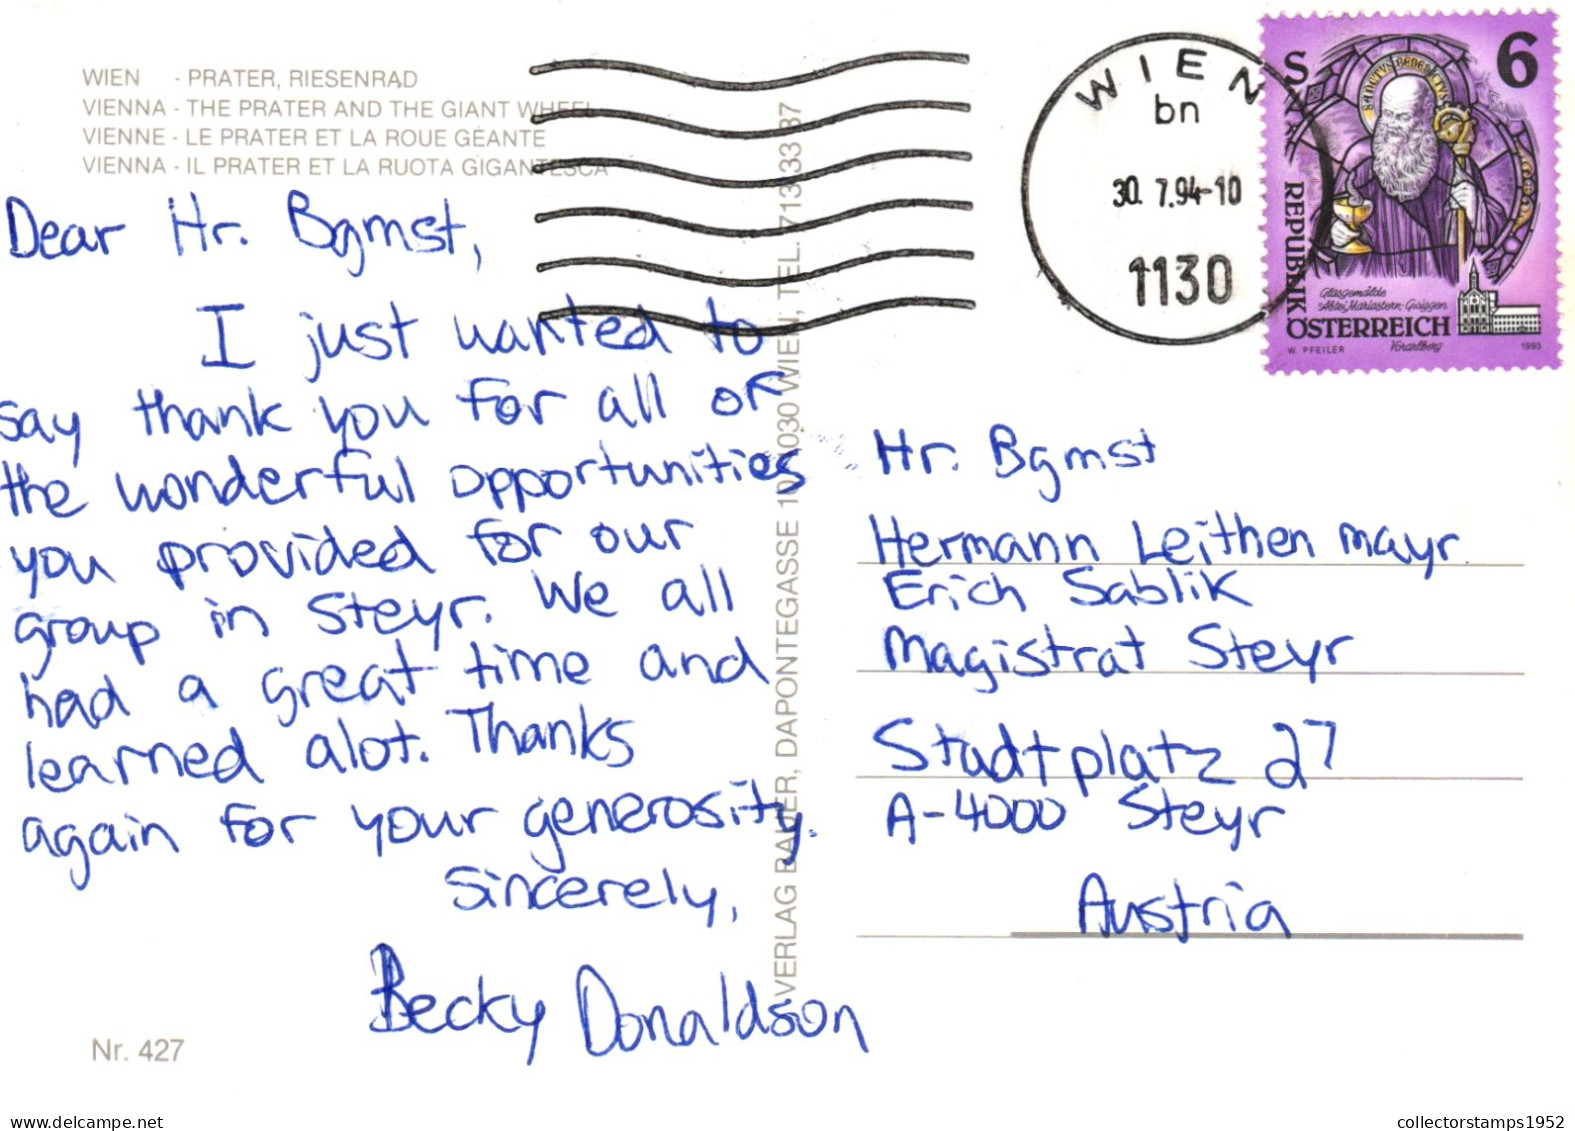 WIEN - PRATER, RIESENRAD
VIENNA - THE PRATER AND THE GIANT WHEEL
VIENNE - LE PRATER ET LA ROUE GÉANTE
VIENNA - IL PRATER ET LA RUOTA GIGANTESCA
Dear Hr. Bgmst,
I just wanted to
say thank you for all of
the wonderful opportunities
you provided for our
group in Steyr. We all
had a great time and
learned alot. Thanks
again for your generosity.
Sincerely,
Becky Donaldson
Nr. 427
VERLAG BAUER, DAPONTEGASSE 10, 1030 WIEN, TEL. 713 33 87
WIEN
bn
30. 7.94-10
1130
6
REPUBLIK
ÖSTERREICH
SANCTUS BENEDICTUS
Glasgemälde
Abtei Mariastern-Gwiggen
Vorarlberg
W. PFEILER
1993
Hr. Bgmst
Hermann Leithenmayr
Erich Sablik
Magistrat Steyr
Stadtplatz 27
A-4000 Steyr
Austria
My collection
collectorstamps1952